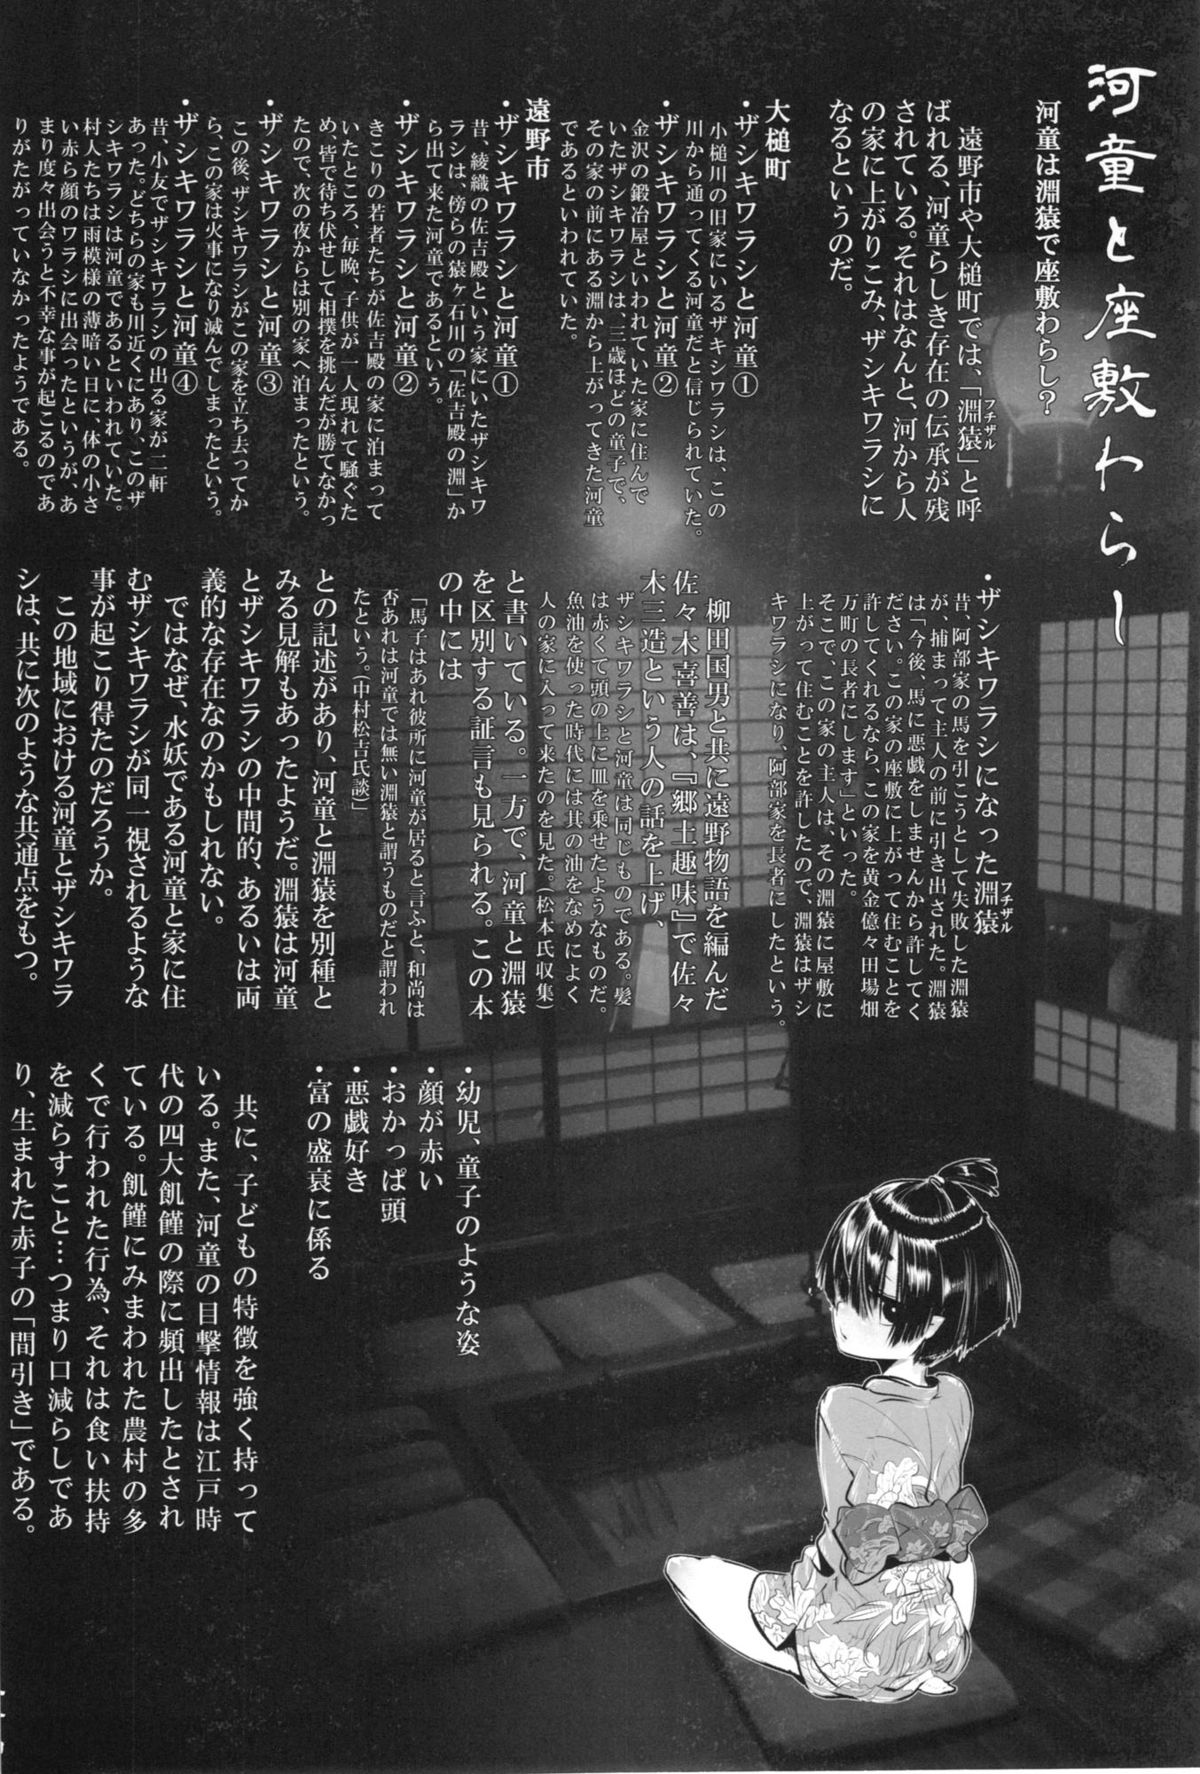 河童と座敷わらし
河童は淵猿で座敷わらし?
遠野市や大槌町では、「淵猿」と呼
フチザル
ばれる、河童らしき存在の伝承が残
されている。それはなんと、河から人
の家に上がりこみ、ザシキワラシに
なるというのだ。
大槌町
・ザシキワラシと河童①
小槌川の旧家にいるザキシワラシは、この
川から通ってくる河童だと信じられていた。
・ザシキワラシと河童②
金沢の鍛冶屋といわれていた家に住んで
いたザシキワラシは、三歳ほどの童子で、
その家の前にある淵から上がってきた河童
であるといわれていた。
遠野市
・ザシキワラシと河童①
昔、綾織の佐吉殿という家にいたザシキワ
ラシは、傍らの猿ヶ石川の「佐吉殿の淵」か
ら出て来た河童であるという。
・ザシキワラシと河童②
きこりの若者たちが佐吉殿の家に泊まって
いたところ、毎晩、子供が一人現れて騒ぐた
め、皆で待ち伏せして相撲を挑んだが勝てなかっ
たので、次の夜からは別の家へ泊まったという。
・ザシキワラシと河童③
この後、ザシキワラシがこの家を立ち去ってか
ら、この家は火事になり滅んでしまったという。
・ザシキワラシと河童④
昔、小友でザシキワラシの出る家が二軒
あった。どちらの家も川近くにあり、このザ
シキワラシは河童であるといわれていた。
村人たちは雨模様の薄暗い日に、体の小さ
い赤ら顔のワラシに出会ったというが、あ
まり度々出会うと不幸な事が起こるのであ
りがたがっていなかったようである。
・ザシキワラシになった淵猿
フチザル
昔、阿部家の馬を引こうとして失敗した淵猿
が、捕まって主人の前に引き出された。淵猿
は「今後、馬に悪戯をしませんから許してく
ださい。この家の座敷に上がって住むことを
許してくれるなら、この家を黄金億々田場畑
万町の長者にします」といった。
そこで、この家の主人は、その淵猿に屋敷に
上がって住むことを許したので、淵猿はザシ
キワラシになり、阿部家を長者にしたという。
柳田国男と共に遠野物語を編んだ
佐々木喜善は、『郷土趣味』で佐々
木三造という人の話を上げ、
ザシキワラシと河童は同じものである。髪
は赤くて頭の上に皿を乗せたようなものだ。
魚油を使った時代には其の油をなめによく
人の家に入って来たのを見た。(松本氏収集)
と書いている。一方で、河童と淵猿
を区別する証言も見られる。この本
の中には
「馬子はあれ彼所に河童が居ると言ふと、和尚は
否あれは河童では無い淵猿と謂うものだと謂われ
たという。(中村松吉氏談)」
との記述があり、河童と淵猿を別種と
みる見解もあったようだ。淵猿は河童
とザシキワラシの中間的、あるいは両
義的な存在なのかもしれない。
ではなぜ、水妖である河童と家に住
むザシキワラシが同一視されるような
事が起こり得たのだろうか。
この地域における河童とザシキワラ
シは、共に次のような共通点をもつ。
・幼児、童子のような姿
・顔が赤い
・おかっぱ頭
・悪戯好き
・富の盛衰に係る
共に、子どもの特徴を強く持って
いる。また、河童の目撃情報は江戸時
代の四大飢饉の際に頻出したとされ
ている。飢饉にみまわれた農村の多
くで行われた行為、それは食い扶持
を減らすこと…つまり口減らしであ
り、生まれた赤子の「間引き」である。